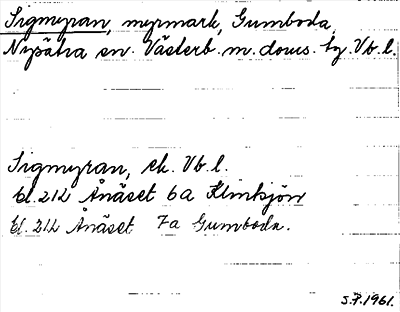 Sigmyran, myrmark, Gumboda,
Nysätra sn. Västerb. m. doms. tg. Vb. l.
Sigmyran, ek. Vb. l.
bl. 212 Ånäset 6a Klintsjön
bl. 212 Ånäset 7a Gumboda.
S.P. 1961.